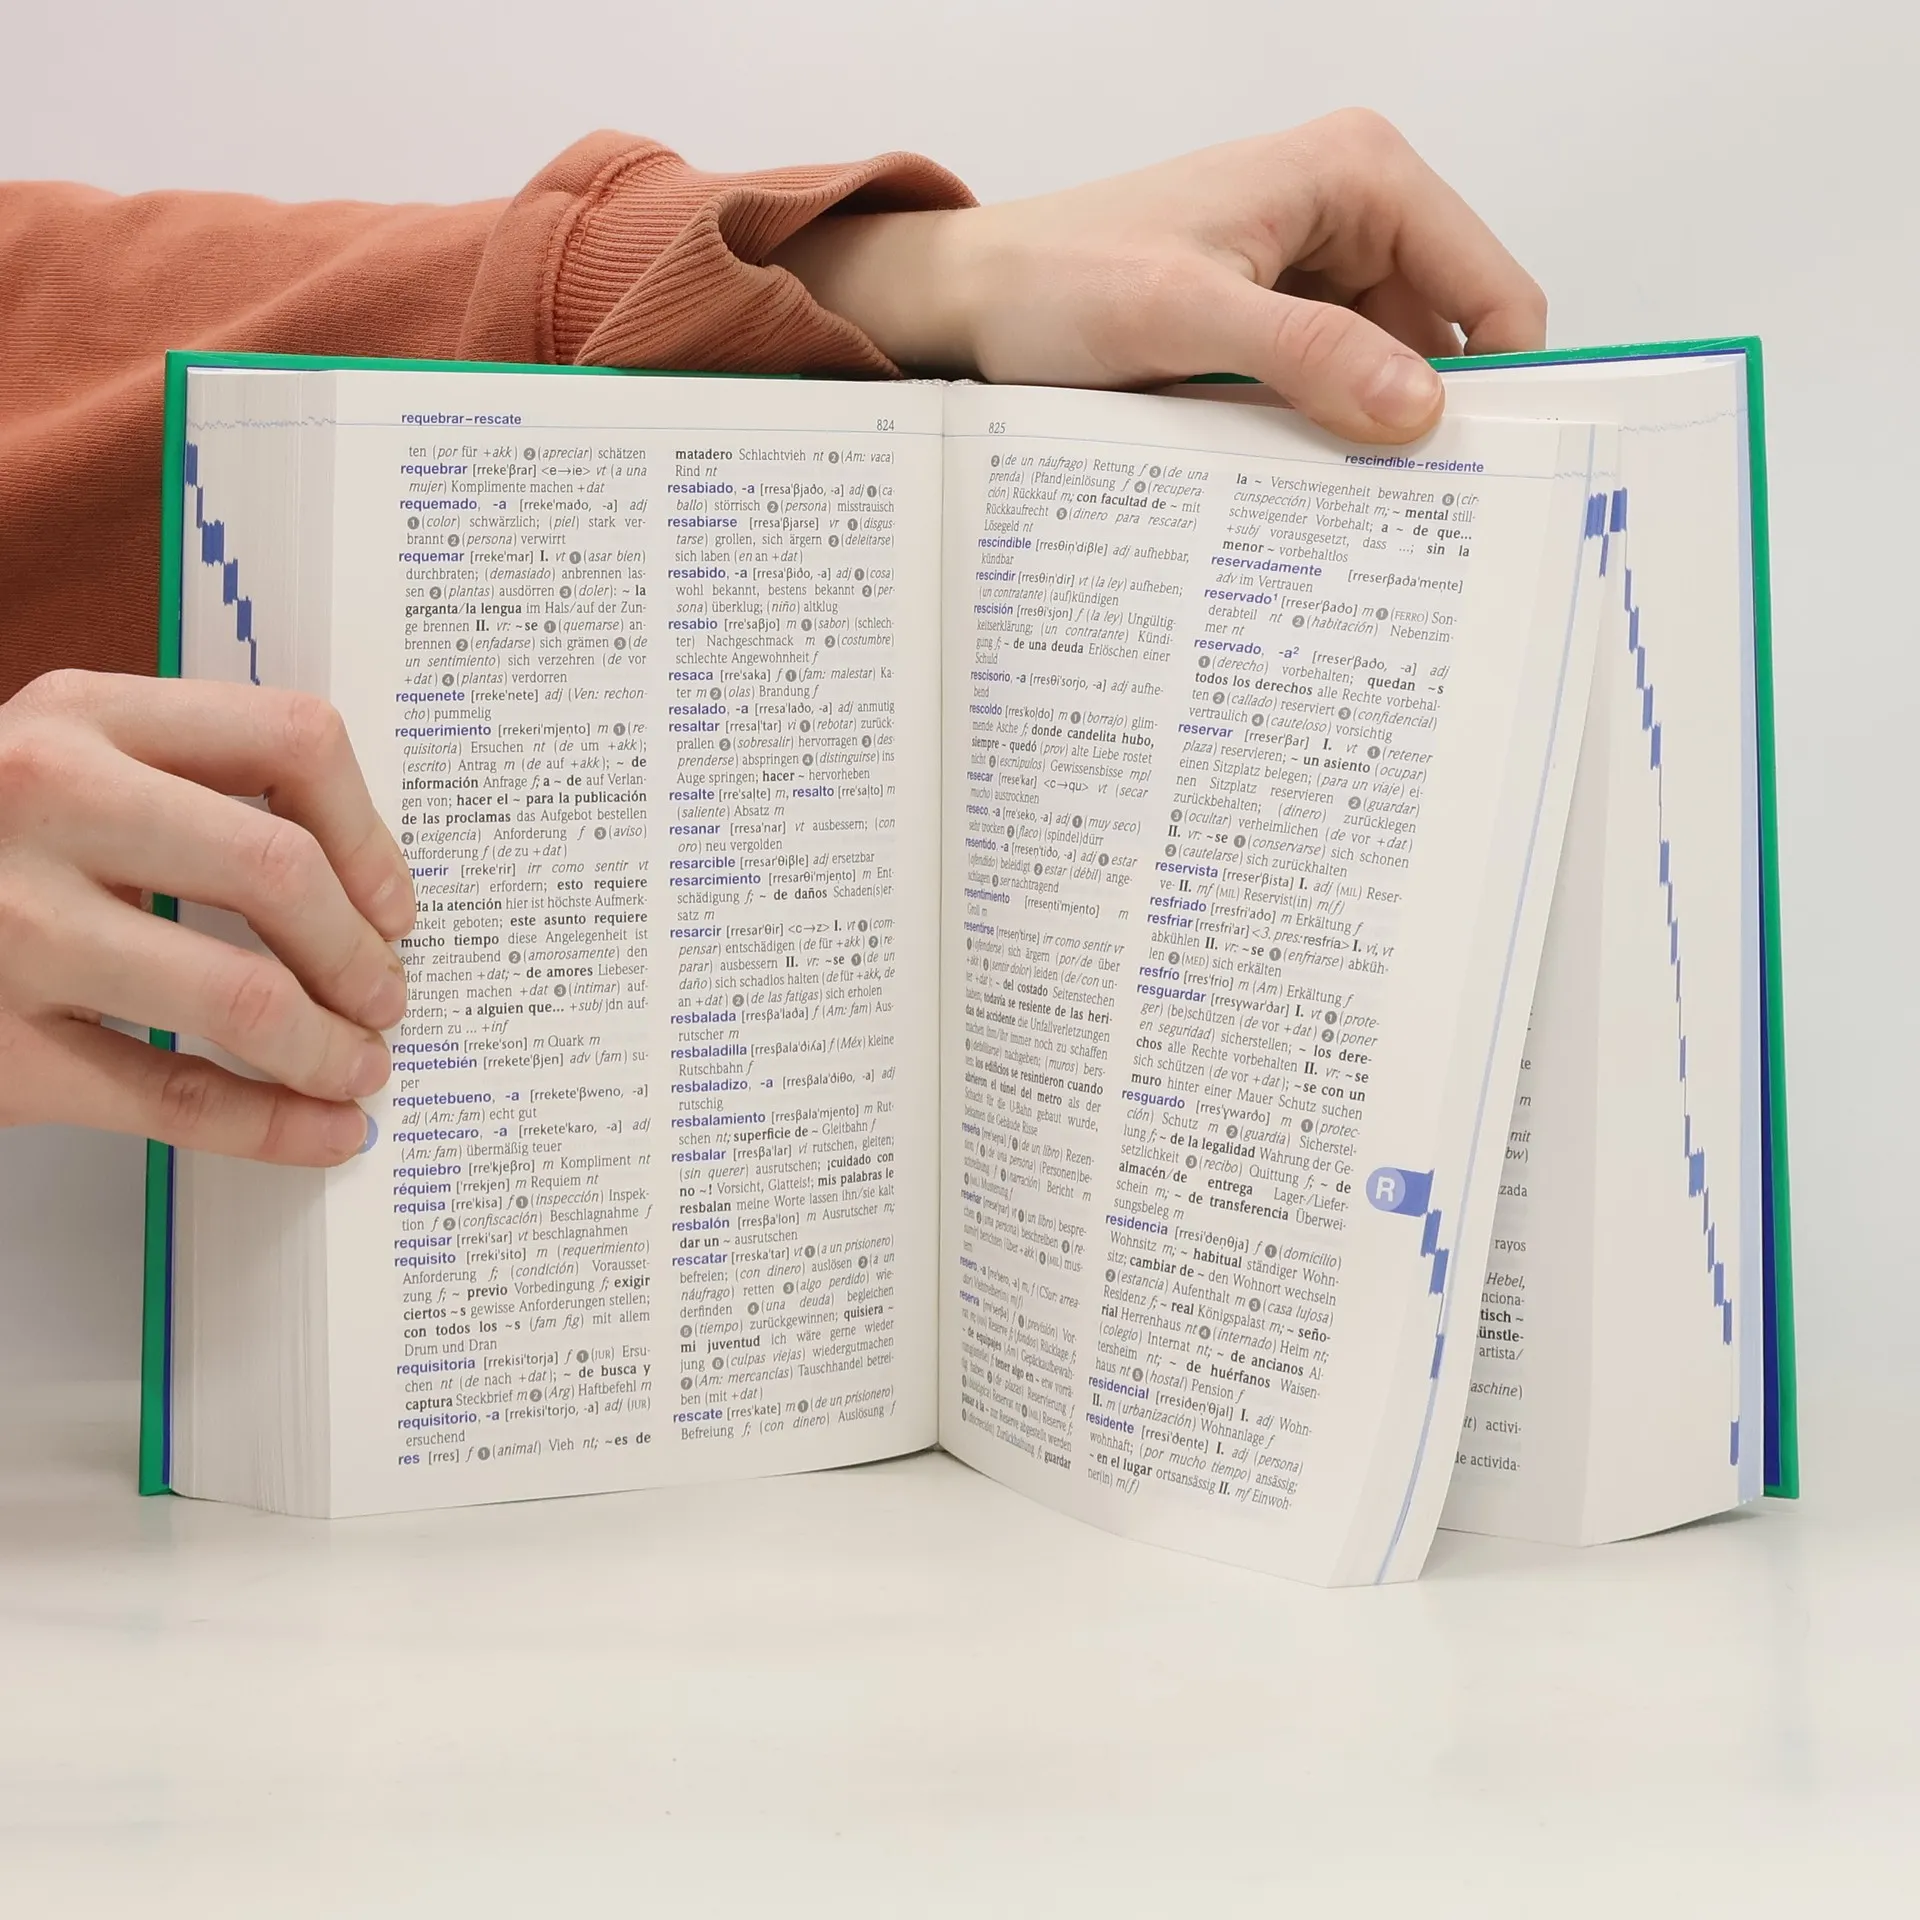 requebrar–rescate
824
ten (por für +akk) ❷(apreciar) schätzen
requebrar [rreke'βrar] <e→ie> vt (a una
mujer) Komplimente machen +dat
requemado, -a [rreke'maðo, -a] adj
❶(color) schwärzlich; (piel) stark ver-
brannt ❷(persona) verwirrt
requemar [rreke'mar] I. vt ❶(asar bien)
durchbraten; (demasiado) anbrennen las-
sen ❷(plantas) ausdörren ❸(doler): ~ la
garganta/la lengua im Hals/auf der Zun-
ge brennen II. vr: ~se ❶(quemarse) an-
brennen ❷(enfadarse) sich grämen ❸(de
un sentimiento) sich verzehren (de vor
+dat) ❹(plantas) verdorren
requenete [rreke'nete] adj (Ven: rechon-
cho) pummelig
requerimiento [rrekeri'mjento] m ❶(re-
quisitoria) Ersuchen nt (de um +akk);
(escrito) Antrag m (de auf +akk); ~ de
información Anfrage f; a ~ de auf Verlan-
gen von; hacer el ~ para la publicación
de las proclamas das Aufgebot bestellen
❷(exigencia) Anforderung f ❸(aviso)
Aufforderung f (de zu +dat)
querir [rreke'rir] irr como sentir vt
(necesitar) erfordern; esto requiere
da la atención hier ist höchste Aufmerk-
mkeit geboten; este asunto requiere
mucho tiempo diese Angelegenheit ist
sehr zeitraubend ❷(amorosamente) den
Hof machen +dat; ~ de amores Liebeser-
lärungen machen +dat ❸(intimar) auf-
ordern; ~ a alguien que... +subj jdn auf-
fordern zu ... +inf
requesón [rreke'son] m Quark m
requetebién [rrekete'βjen] adv (fam) su-
per
requetebueno, -a [rrekete'βweno, -a]
adj (Am: fam) echt gut
requetecaro, -a [rrekete'karo, -a] adj
(Am: fam) übermäßig teuer
requiebro [rre'kjeβro] m Kompliment nt
réquiem ['rrekjen] m Requiem nt
requisa [rre'kisa] f ❶(inspección) Inspek-
tion f ❷(confiscación) Beschlagnahme f
requisar [rreki'sar] vt beschlagnahmen
requisito [rreki'sito] m (requerimiento)
Anforderung f; (condición) Vorausset-
zung f; ~ previo Vorbedingung f; exigir
ciertos ~s gewisse Anforderungen stellen;
con todos los ~s (fam fig) mit allem
Drum und Dran
requisitoria [rrekisi'torja] f ❶(JUR) Ersu-
chen nt (de nach +dat); ~ de busca y
captura Steckbrief m ❷(Arg) Haftbefehl m
requisitorio, -a [rrekisi'torjo, -a] adj (JUR)
ersuchend
res [rres] f ❶(animal) Vieh nt; ~es de
matadero Schlachtvieh nt ❷(Am: vaca)
Rind nt
resabiado, -a [rresa'βjaðo, -a] adj ❶(ca-
ballo) störrisch ❷(persona) misstrauisch
resabiarse [rresa'βjarse] vr ❶(disgus-
tarse) grollen, sich ärgern ❷(deleitarse)
sich laben (en an +dat)
resabido, -a [rresa'βiðo, -a] adj ❶(cosa)
wohl bekannt, bestens bekannt ❷(per-
sona) überklug; (niño) altklug
resabio [rre'saβjo] m ❶(sabor) (schlech-
ter) Nachgeschmack m ❷(costumbre)
schlechte Angewohnheit f
resaca [rre'saka] f ❶(fam: malestar) Ka-
ter m ❷(olas) Brandung f
resalado, -a [rresa'laðo, -a] adj anmutig
resaltar [rresal'tar] vi ❶(rebotar) zurück-
prallen ❷(sobresalir) hervorragen ❸(des-
prenderse) abspringen ❹(distinguirse) ins
Auge springen; hacer ~ hervorheben
resalte [rre'salte] m, resalto [rre'salto] m
(saliente) Absatz m
resanar [rresa'nar] vt ausbessern; (con
oro) neu vergolden
resarcible [rresar'θiβle] adj ersetzbar
resarcimiento [rresarθi'mjento] m Ent-
schädigung f; ~ de daños Schaden(s)er-
satz m
resarcir [rresar'θir] <c→z> I. vt ❶(com-
pensar) entschädigen (de für +akk) ❷(re-
parar) ausbessern II. vr: ~se ❶(de un
daño) sich schadlos halten (de für +akk, de
an +dat) ❷(de las fatigas) sich erholen
resbalada [rresβa'laða] f (Am: fam) Aus-
rutscher m
resbaladilla [rresβala'ðiʎa] f (Méx) kleine
Rutschbahn f
resbaladizo, -a [rresβala'ðiθo, -a] adj
rutschig
resbalamiento [rresβala'mjento] m Rut-
schen nt; superficie de ~ Gleitbahn f
resbalar [rresβa'lar] vi rutschen, gleiten;
(sin querer) ausrutschen; ¡cuidado con
no ~! Vorsicht, Glatteis!; mis palabras le
resbalan meine Worte lassen ihn/sie kalt
resbalón [rresβa'lon] m Ausrutscher m;
dar un ~ ausrutschen
rescatar [rreska'tar] vt ❶(a un prisionero)
befreien; (con dinero) auslösen ❷(a un
náufrago) retten ❸(algo perdido) wie-
derfinden ❹(una deuda) begleichen
❺(tiempo) zurückgewinnen; quisiera ~
mi juventud ich wäre gerne wieder
jung ❻(culpas viejas) wiedergutmachen
❼(Am: mercancías) Tauschhandel betrei-
ben (mit +dat)
rescate [rres'kate] m ❶(de un prisionero)
Befreiung f; (con dinero) Auslösung f
825
rescindible–residente
❷(de un náufrago) Rettung f ❸(de una
prenda) (Pfand)einlösung f ❹(recupera-
ción) Rückkauf m; con facultad de ~ mit
Rückkaufrecht ❺(dinero para rescatar)
Lösegeld nt
rescindible [rresθin'diβle] adj aufhebbar,
kündbar
rescindir [rresθin'dir] vt (la ley) aufheben;
(un contratante) (auf)kündigen
rescisión [rresθi'sjon] f (la ley) Ungültig-
keitserklärung; (un contratante) Kündi-
gung f; ~ de una deuda Erlöschen einer
Schuld
rescisorio, -a [rresθi'sorjo, -a] adj aufhe-
bend
rescoldo [rres'koldo] m ❶(borrajo) glim-
mende Asche f; donde candelita hubo,
siempre ~ quedó (prov) alte Liebe rostet
nicht ❷(escrúpulos) Gewissensbisse mpl
resecar [rrese'kar] <c→qu> vt (secar
mucho) austrocknen
reseco, -a [rre'seko, -a] adj ❶(muy seco)
sehr trocken ❷(flaco) (spindel)dürr
resentido, -a [rresen'tiðo, -a] adj ❶ estar
(ofendido) beleidigt ❷ estar (débil) ange-
schlagen ❸ ser nachtragend
resentimiento [rresenti'mjento] m
Groll m
resentirse [rresen'tirse] irr como sentir vr
❶(ofenderse) sich ärgern (por/de über
+akk) ❷(sentir dolor) leiden (de/con un-
ter +dat); ~ del costado Seitenstechen
haben; todavía se resiente de las heri-
das del accidente die Unfallverletzungen
machen ihm/ihr immer noch zu schaffen
❸(debilitarse) nachgeben; (muros) bers-
ten; los edificios se resintieron cuando
abrieron el túnel del metro als der
Schacht für die U-Bahn gebaut wurde,
bekamen die Gebäude Risse
reseña [rre'seɲa] f ❶(de un libro) Rezen-
sion f ❷(de una persona) (Personen)be-
schreibung f ❸(narración) Bericht m
❹(MIL) Musterung f
reseñar [rrese'ɲar] vt ❶(un libro) bespre-
chen ❷(una persona) beschreiben ❸(re-
sumir) berichten (über +akk) ❹(MIL) mus-
tern
resero, -a [rre'sero, -a] m, f (CSur: arrea-
dor) Viehtreiber(in) m(f)
reserva [rre'serβa] f ❶(previsión) Vor-
rat m; (MIL) Reserve f; (fondos) Rücklage f;
~ de equipajes (Am) Gepäckaufbewah-
rung(stelle) f; tener algo en ~ etw vorrä-
tig haben; ❷(de plazas) Reservierung f
❸(biológica) Reservat nt ❹(MIL) Reserve f;
pasar a la ~ zur Reserve abgestellt werden
❺(discreción) Zurückhaltung f; guardar
la ~ Verschwiegenheit bewahren ❻(cir-
cunspección) Vorbehalt m; ~ mental still-
schweigender Vorbehalt; a ~ de que...
+subj vorausgesetzt, dass ...; sin la
menor ~ vorbehaltlos
reservadamente [rreserβaða'mente]
adv im Vertrauen
reservado¹ [rreser'βaðo] m ❶(FERRO) Son-
derabteil nt ❷(habitación) Nebenzim-
mer nt
reservado, -a² [rreser'βaðo, -a] adj
❶(derecho) vorbehalten; quedan ~s
todos los derechos alle Rechte vorbehal-
ten ❷(callado) reserviert ❸(confidencial)
vertraulich ❹(cauteloso) vorsichtig
reservar [rreser'βar] I. vt ❶(retener
plaza) reservieren; ~ un asiento (ocupar)
einen Sitzplatz belegen; (para un viaje) ei-
nen Sitzplatz reservieren ❷(guardar)
zurückbehalten; (dinero) zurücklegen
❸(ocultar) verheimlichen (de vor +dat)
II. vr: ~se ❶(conservarse) sich schonen
❷(cautelarse) sich zurückhalten
reservista [rreser'βista] I. adj (MIL) Reser-
ve- II. mf (MIL) Reservist(in) m(f)
resfriado [rresfri'aðo] m Erkältung f
resfriar [rresfri'ar] <3. pres: resfría> I. vi, vt
abkühlen II. vr: ~se ❶(enfriarse) abküh-
len ❷(MED) sich erkälten
resfrío [rres'frio] m (Am) Erkältung f
resguardar [rresɣwar'ðar] I. vt ❶(prote-
ger) (be)schützen (de vor +dat) ❷(poner
en seguridad) sicherstellen; ~ los dere-
chos alle Rechte vorbehalten II. vr: ~se
sich schützen (de vor +dat); ~se con un
muro hinter einer Mauer Schutz suchen
resguardo [rres'ɣwarðo] m ❶(protec-
ción) Schutz m ❷(guardia) Sicherstel-
lung f; ~ de la legalidad Wahrung der Ge-
setzlichkeit ❸(recibo) Quittung f; ~ de
almacén/de entrega Lager-/Liefer-
schein m; ~ de transferencia Überwei-
sungsbeleg m
residencia [rresi'ðenθja] f ❶(domicilio)
Wohnsitz m; ~ habitual ständiger Wohn-
sitz; cambiar de ~ den Wohnort wechseln
❷(estancia) Aufenthalt m ❸(casa lujosa)
Residenz f; ~ real Königspalast m; ~ seño-
rial Herrenhaus nt ❹(internado) Heim nt;
(colegio) Internat nt; ~ de ancianos Al-
tersheim nt; ~ de huérfanos Waisen-
haus nt ❺(hostal) Pension f
residencial [rresiðen'θjal] I. adj Wohn-
II. m (urbanización) Wohnanlage f
residente [rresi'ðente] I. adj (persona)
wohnhaft; (por mucho tiempo) ansässig;
~ en el lugar ortsansässig II. mf Einwoh-
ner(in) m(f)
R
te
m
mit
bw)
zada
rayos
Hebel,
nciona-
tisch ~
ünstle-
artista/
aschine)
it) activi-
le activida-